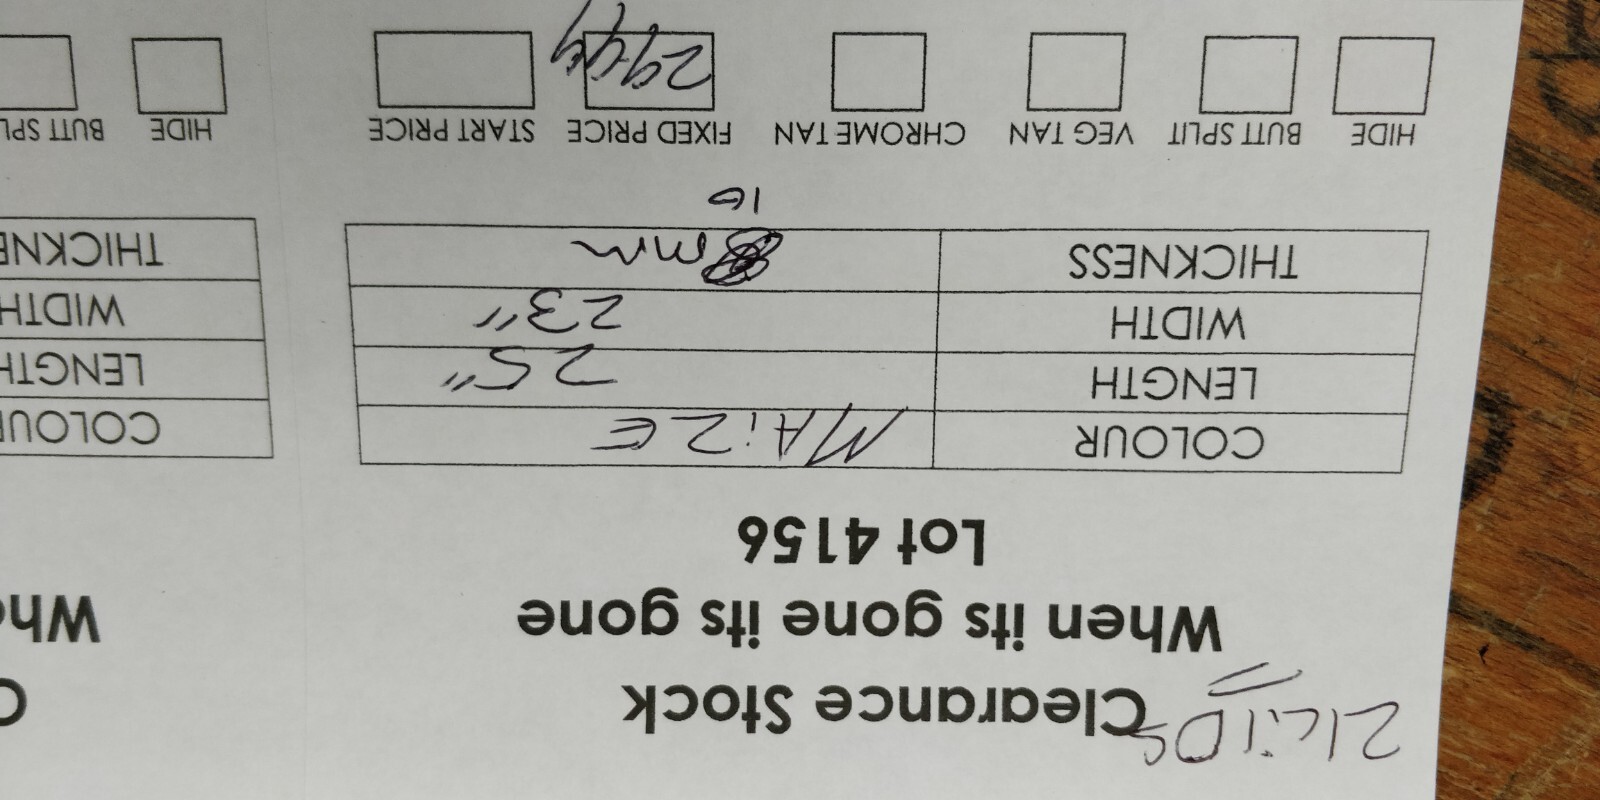 2 KiDS
Clearance Stock
When its gone its gone
Lot 4156
COLOUR MAiZE
LENGTH 25"
WIDTH 23"
THICKNESS mm
HIDE
BUTT SPLIT
VEG TAN
CHROME TAN
FIXED PRICE
START PRICE
2999
C
Whe
COLOU
LENGTH
WIDTH
THICKNE
HIDE
BUTT SPL